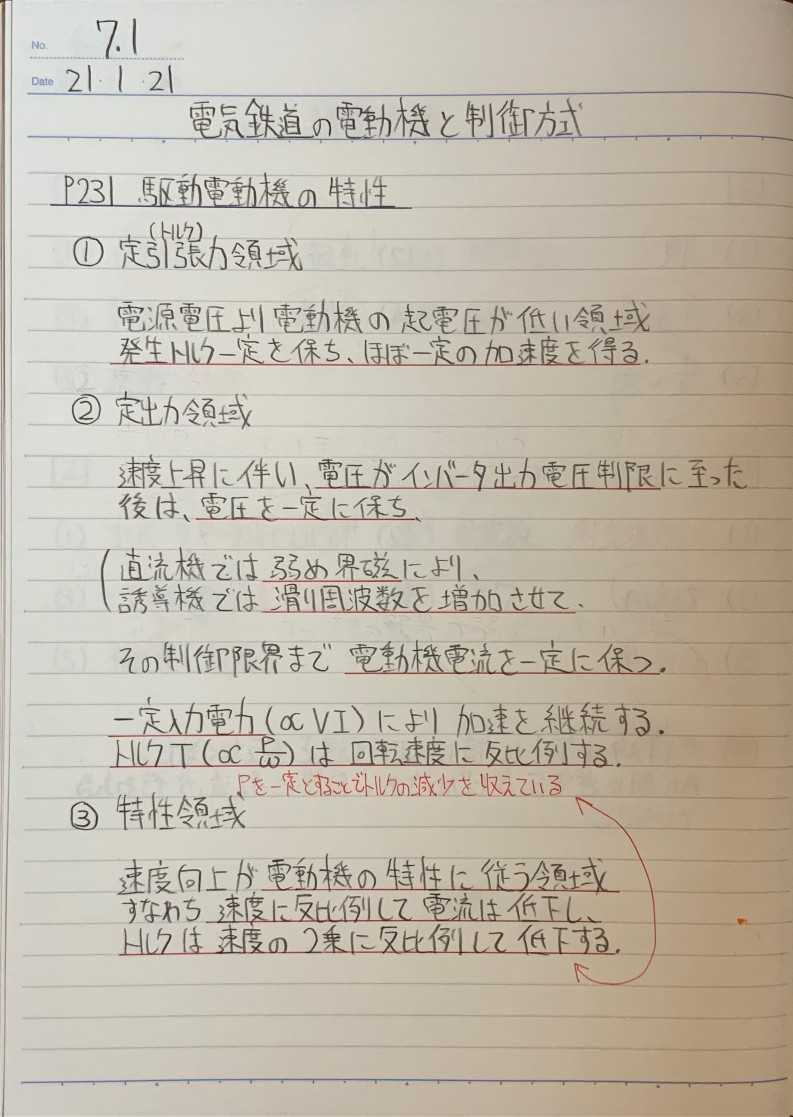 No. 7.1
Date 21・1・21
電気鉄道の電動機と制御方式
P231 駆動電動機の特性
(トルク)
① 定引張力領域
電源電圧より電動機の起電圧が低い領域
発生トルク一定を保ち、ほぼ一定の加速度を得る.
② 定出力領域
速度上昇に伴い、電圧がインバータ出力電圧制限に至った
後は、電圧を一定に保ち、
直流機では弱め界磁により、
誘導機では滑り周波数を増加させて、
その制御限界まで 電動機電流を一定に保つ.
一定入力電力(∝VI)により 加速を継続する.
トルクT(∝P/ω)は 回転速度に反比例する.
Pを一定とすることでトルクの減少を収えている
③ 特性領域
速度向上が電動機の特性に従う領域
すなわち 速度に反比例して電流は低下し、
トルクは速度の2乗に反比例して低下する.